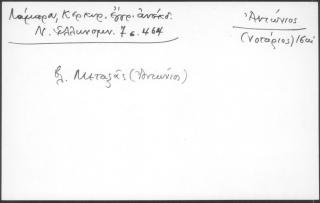 Λάμπρου, Κερκυρ. ἔγγρ. ἀνέκδ.
Ν. Ἑλληνομν. 7 σ. 464
Ἀντώνιος
(νοτάριος)
βλ. Μεταξᾶς (Ἀντώνιος)